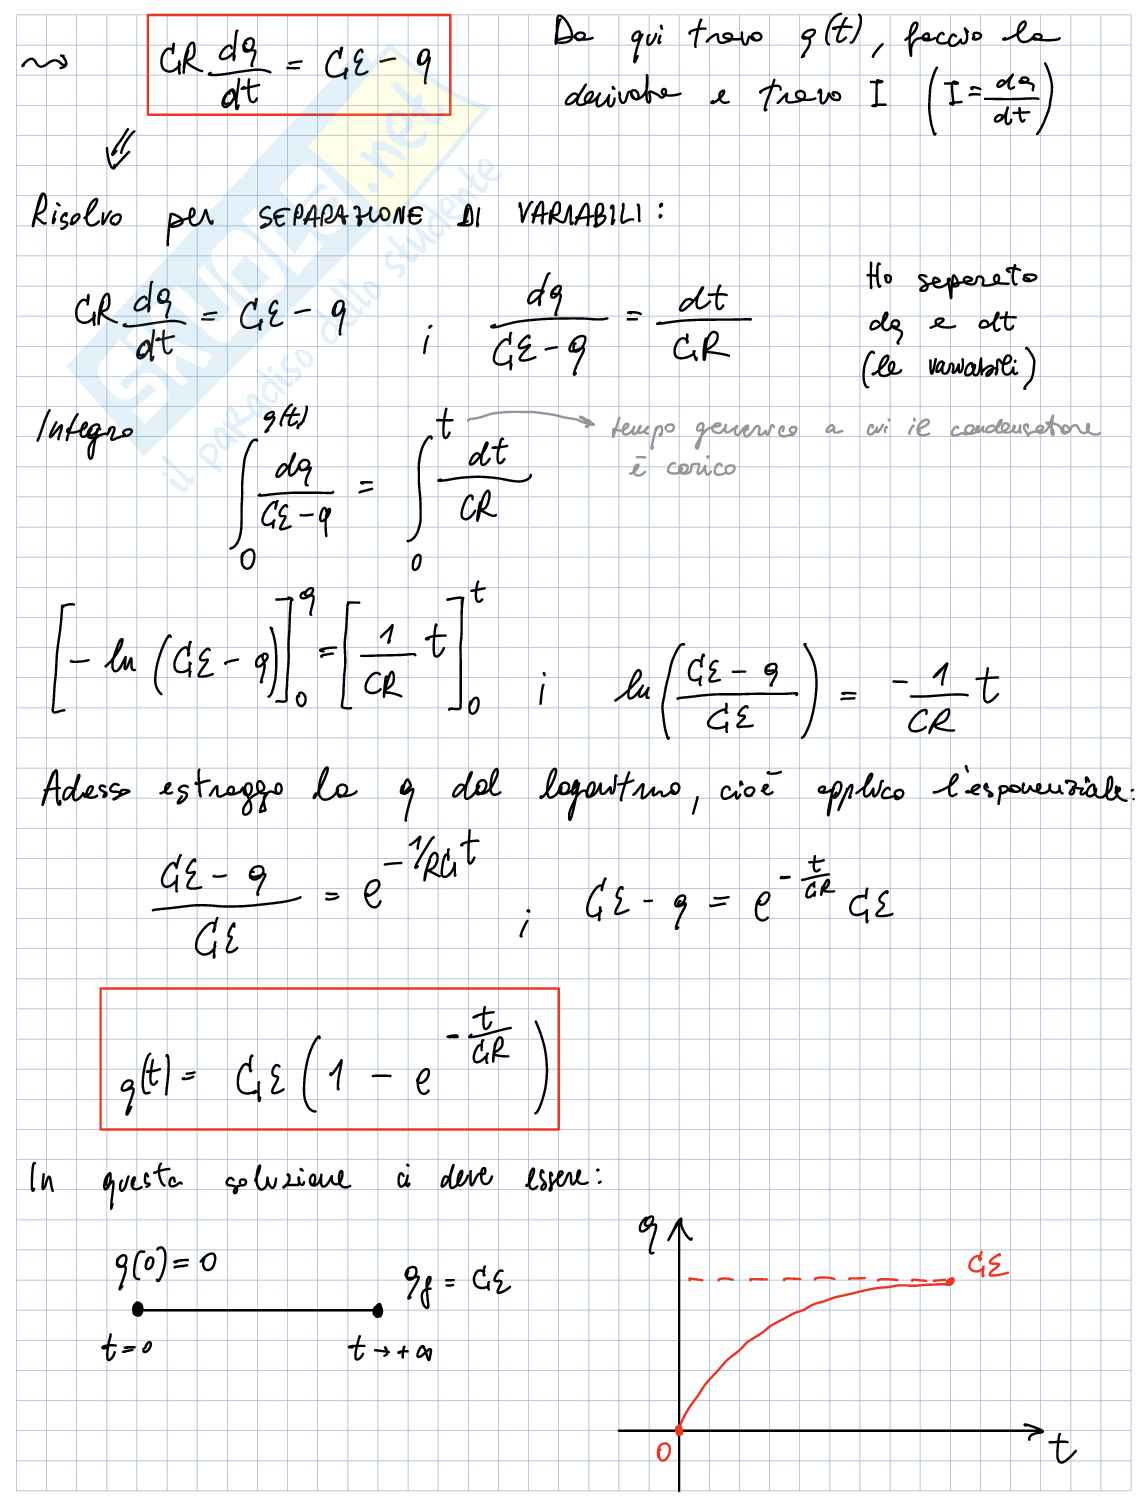 ⇝ CR dq/dt = Cℰ - q
Da qui trovo q(t), faccio la
derivata e trovo I (I = dq/dt)
Risolvo per SEPARAZIONE DI VARIABILI:
CR dq/dt = Cℰ - q ; dq/(Cℰ - q) = dt/CR
Ho separato
dq e dt
(le variabili)
Integro ∫₀^q(t) dq/(Cℰ - q) = ∫₀^t dt/CR
tempo generico a cui il condensatore
è carico
[- ln (Cℰ - q)]₀^q = [1/CR t]₀^t ; ln((Cℰ - q)/Cℰ) = -1/CR t
Adesso estraggo la q dal logaritmo, cioè applico l'esponenziale:
(Cℰ - q)/Cℰ = e^(-1/RC t) ; Cℰ - q = e^(-t/CR) Cℰ
q(t) = Cℰ (1 - e^(-t/CR))
In questa soluzione ci deve essere:
q(0) = 0
qf = Cℰ
t=0
t → +∞
q
Cℰ
0
t
SKUOLA.net
il paradiso dello studente